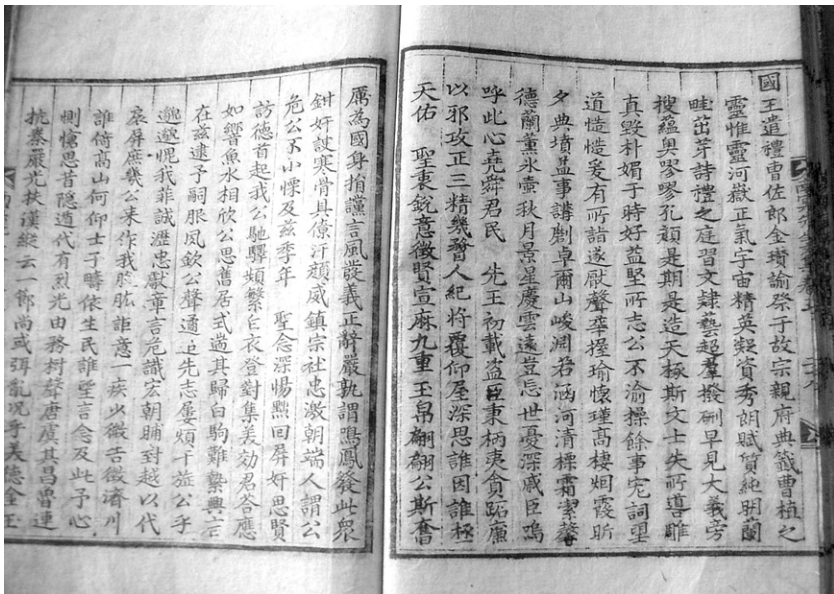 國王遣禮曹佐郎金瓚諭祭于故宗親府典籤曹植之
靈惟靈河嶽正氣宇宙精英凝資秀朗賦質純明蘭
畦茁芽詩禮之庭習文隷藝超羣撥刪早見大義旁
搜蘊奥嘐嘐孔顔是期是造天椓斯文士失所導雕
真毁朴媚于時好益堅所志公不渝操餘事宏詞望
道慥慥爰有所詣遂厭聲華握瑜懐瑾高棲烟霞昕
夕典墳益事講劘卓爾山峻淵若涵河清標霜潔馨
德蘭薰氷壷秋月景星慶雲遠豈忘世憂深戚臣嗚
呼此心堯舜君民 先王初載盗臣秉柄夷貪跖廉
以邪攻正三精幾瞀人紀將覆仰屋深思誰因誰極
天佑 聖衷鋭意徴賢宣麻九重玉帛翩翩公斯奮
厲為國身捐讜言風發義正辭嚴孰謂鳴鳳發此衆
鉗奸諛寒骨具僚汗顔威鎮宗社忠激朝端人謂公
危公不小慄及兹季年 聖念深惕黜回屏奸思賢
訪德首起我公馳驛頻繁白衣登對集美効君荅應
如響魚水相欣公思舊居式遄其歸白駒難縶興言
在兹逮予嗣服夙欽公聲遹追先志屢煩干旌公乎
邈邈愧我菲誠瀝忠獻章言危識宏朝晡對越以代
扆屏庶幾公来作我股肱詎意一疾少微告徴濟川
誰倚高山何仰士子疇依生民誰望言念及此予心
惻愴思昔隠遁代有烈光由務樹聲唐虞其昌魯連
抗秦嚴光扶漢縱云一節尚或弭亂況乎美德金玉